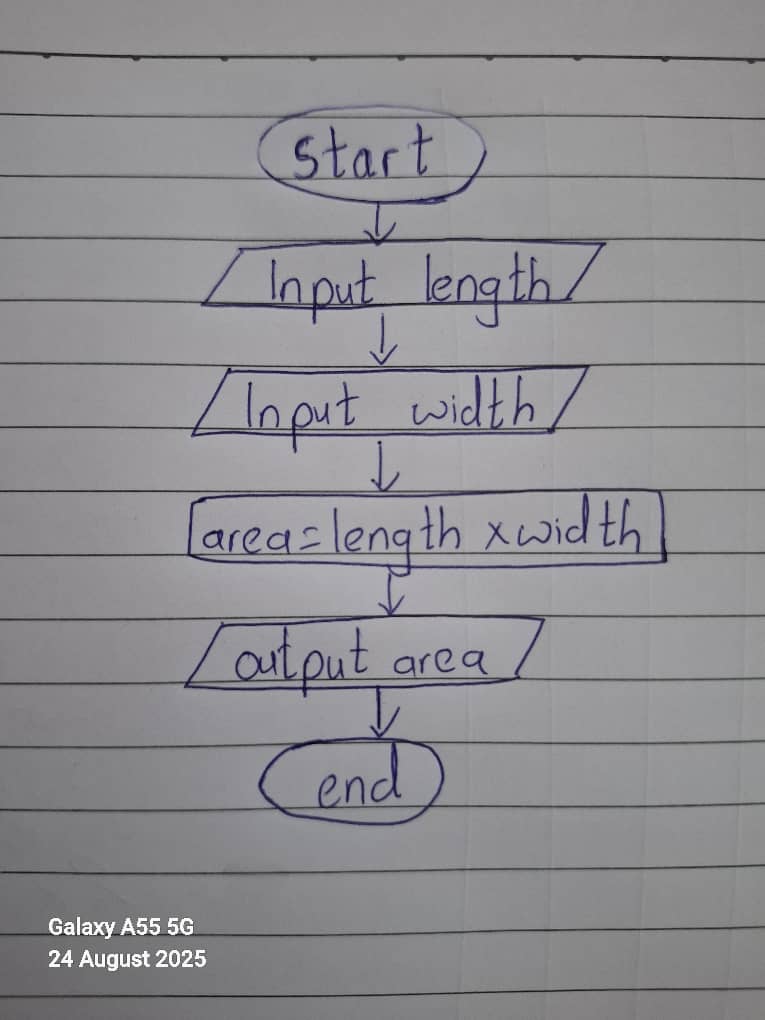 start
Input length
Input width
area=length x width
output area
end
Galaxy A55 5G
24 August 2025